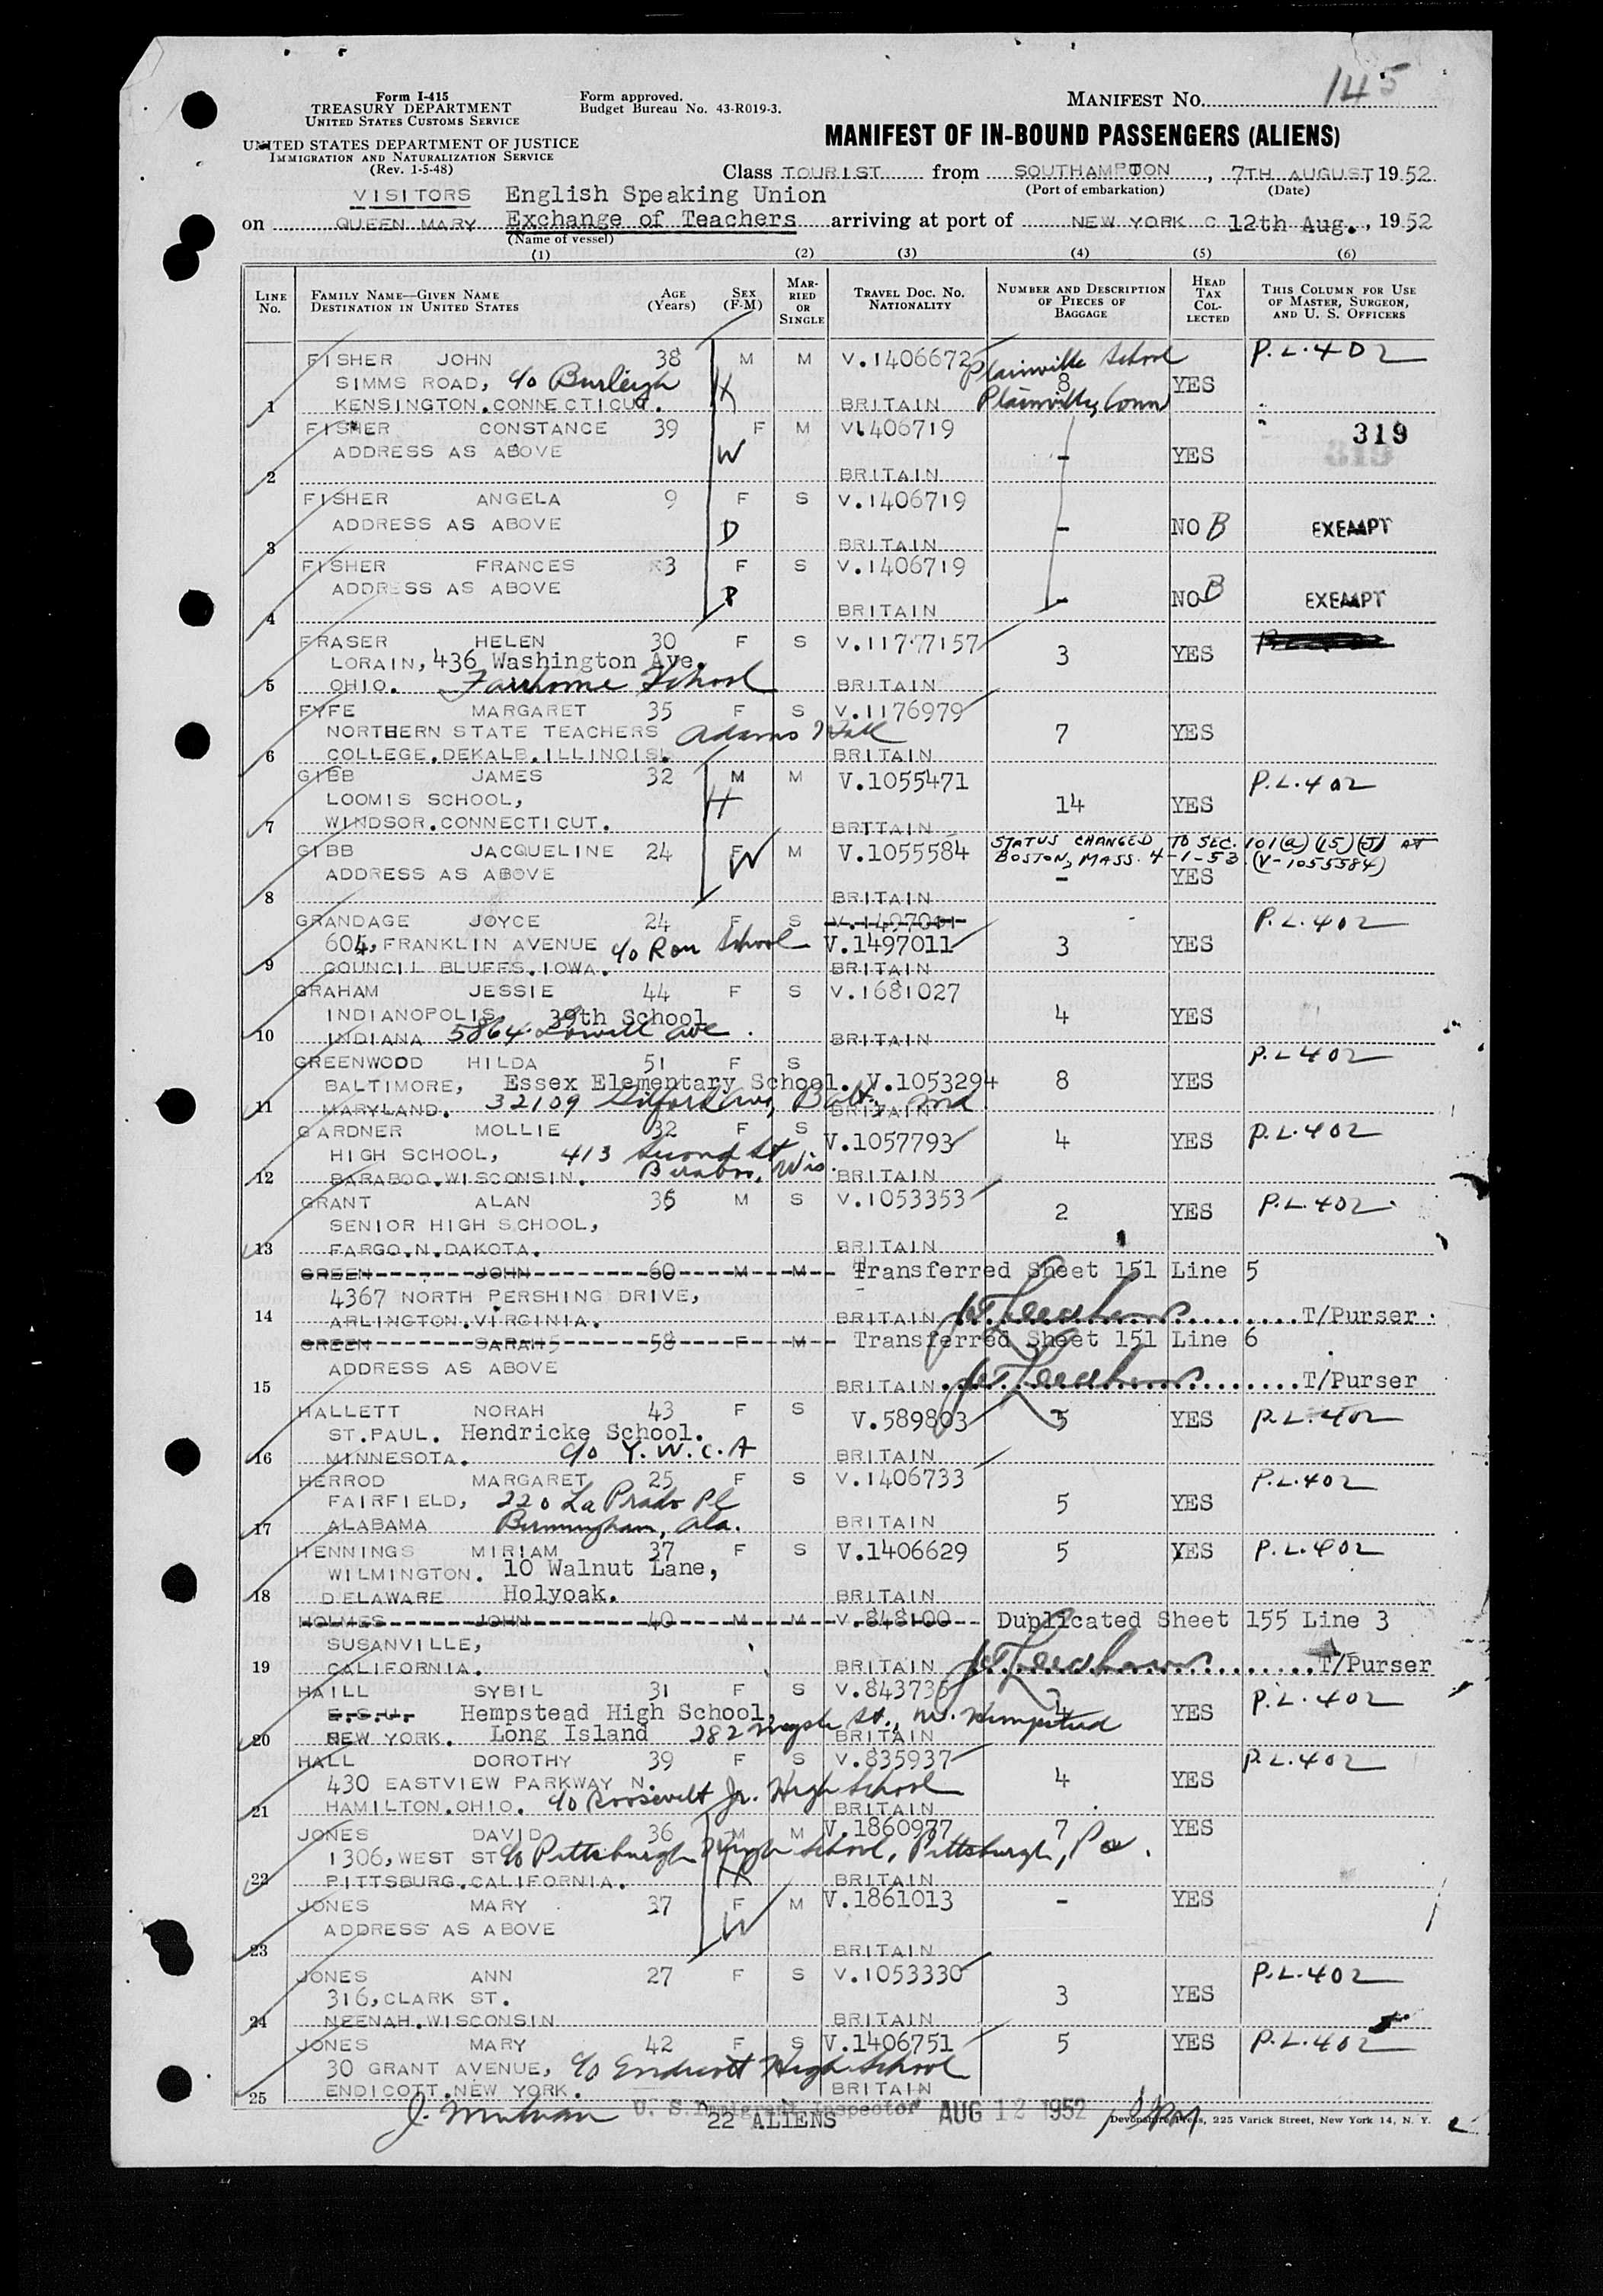 145
Form I-415
TREASURY DEPARTMENT
UNITED STATES CUSTOMS SERVICE
Form approved.
Budget Bureau No. 43-R019-3.
MANIFEST No.
UNITED STATES DEPARTMENT OF JUSTICE
IMMIGRATION AND NATURALIZATION SERVICE
(Rev. 1-5-48)
MANIFEST OF IN-BOUND PASSENGERS (ALIENS)
Class TOURIST from SOUTHAMPTON, 7TH AUGUST, 1952
(Port of embarkation) (Date)
VISITORS English Speaking Union
on QUEEN MARY Exchange of Teachers arriving at port of NEW YORK C 12th Aug., 1952
(Name of vessel)
(1) (2) (3) (4) (5) (6)
LINE No. FAMILY NAME—GIVEN NAME DESTINATION IN UNITED STATES AGE (Years) SEX (F-M) MARRIED OR SINGLE TRAVEL DOC. No. NATIONALITY NUMBER AND DESCRIPTION OF PIECES OF BAGGAGE HEAD TAX COLLECTED THIS COLUMN FOR USE OF MASTER, SURGEON, AND U. S. OFFICERS
FISHER JOHN 38 M M V.1406672 Plainville School P.L.402
SIMMS ROAD, c/o Burleigh H 8 YES
1 KENSINGTON.CONNECTICUT. BRITAIN Plainville, Conn
FISHER CONSTANCE 39 F M V1.406719 319
ADDRESS AS ABOVE W - YES
2 BRITAIN
FISHER ANGELA 9 F S V.1406719
ADDRESS AS ABOVE D - NO B EXEMPT
3 BRITAIN
FISHER FRANCES 3 F S V.1406719
ADDRESS AS ABOVE D - NO B EXEMPT
4 BRITAIN
FRASER HELEN 30 F S V.11777157
LORAIN, 436 Washington Ave. 3 YES
5 OHIO. Fairhome School BRITAIN
FYFE MARGARET 35 F S V.1176979
NORTHERN STATE TEACHERS Adams Hall 7 YES
6 COLLEGE.DEKALB.ILLINOIS. BRITAIN
GIBB JAMES 32 M M V.1055471 P.L.402
LOOMIS SCHOOL, H 14 YES
7 WINDSOR.CONNECTICUT. BRITAIN
GIBB JACQUELINE 24 F W M V.1055584 STATUS CHANGED TO SEC. 101(a)(15)(J) AT
BOSTON, MASS. 4-1-53 (V-1055584)
ADDRESS AS ABOVE - YES
8 BRITAIN
GRANDAGE JOYCE 24 F S P.L.402
604, FRANKLIN AVENUE c/o School V.1497011 3 YES
9 COUNCIL BLUFFS.IOWA. BRITAIN
GRAHAM JESSIE 44 F S V.1681027
INDIANAPOLIS, 39th School 4 YES
10 INDIANA 5864 Lowell Ave. BRITAIN
GREENWOOD HILDA 51 F S P.L.402
BALTIMORE, Essex Elementary School. V.1053294 8 YES
11 MARYLAND. 32109 Gilford Ave, Balt., Md BRITAIN
GARDNER MOLLIE 32 F S V.1057793 4 YES P.L.402
HIGH SCHOOL, 413 Second St
12 BARABOO.WISCONSIN. Baraboo, Wis. BRITAIN
GRANT ALAN 36 M S V.1053353 P.L.402
SENIOR HIGH SCHOOL, 2 YES
13 FARGO.N.DAKOTA. BRITAIN
GREEN JOHN 60 M M Transferred Sheet 151 Line 5
4367 NORTH PERSHING DRIVE,
14 ARLINGTON.VIRGINIA. BRITAIN T/Purser.
GREEN SARAH 58 F M Transferred Sheet 151 Line 6
ADDRESS AS ABOVE
15 BRITAIN T/Purser
HALLETT NORAH 43 F S V.589803 5 YES P.L.402
ST.PAUL. Hendricke School.
16 MINNESOTA. c/o Y.W.C.A BRITAIN
HERROD MARGARET 25 F S V.1406733 P.L.402
FAIRFIELD, 220 La Prado Pl 5 YES
17 ALABAMA Birmingham, Ala. BRITAIN
HENNINGS MIRIAM 37 F S V.1406629 5 YES P.L.402
WILMINGTON. 10 Walnut Lane,
18 DELAWARE Holyoak. BRITAIN
HOLMES JOHN 40 M M V.848100 Duplicated Sheet 155 Line 3
SUSANVILLE,
19 CALIFORNIA. BRITAIN T/Purser
HAILL SYBIL 31 F S V.843735 P.L.402
E.S.U. Hempstead High School, 4 YES
20 NEW YORK. Long Island 282 St., W. Hempstead BRITAIN
HALL DOROTHY 39 F S V.835937 P.L.402
430 EASTVIEW PARKWAY N. 4 YES
21 HAMILTON.OHIO. c/o Roosevelt Jr. High School BRITAIN
JONES DAVID 36 M M V.1860977 7 YES
1306, WEST ST c/o Pittsburgh High School, Pittsburgh, Pa.
22 PITTSBURG.CALIFORNIA. H BRITAIN
JONES MARY 37 F M V.1861013 - YES
ADDRESS AS ABOVE W
23 BRITAIN
JONES ANN 27 F S V.1053330 P.L.402
316, CLARK ST. 3 YES
24 NEENAH.WISCONSIN BRITAIN
JONES MARY 42 F S V.1406751 5 YES P.L.402
30 GRANT AVENUE, c/o Endicott High School
25 ENDICOTT.NEW YORK. BRITAIN
U. S. Immigrant Inspector AUG 12 1952
22 ALIENS
Devonshire Press, 225 Varick Street, New York 14, N. Y.